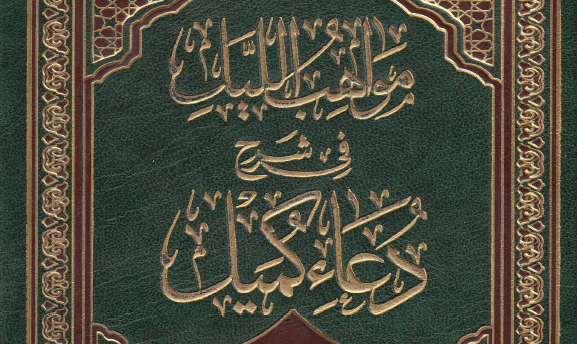 مَوَاهِبُ اللَّيْلِ
فِي شَرْحِ
دُعَاءِ كُمَيْلٍ